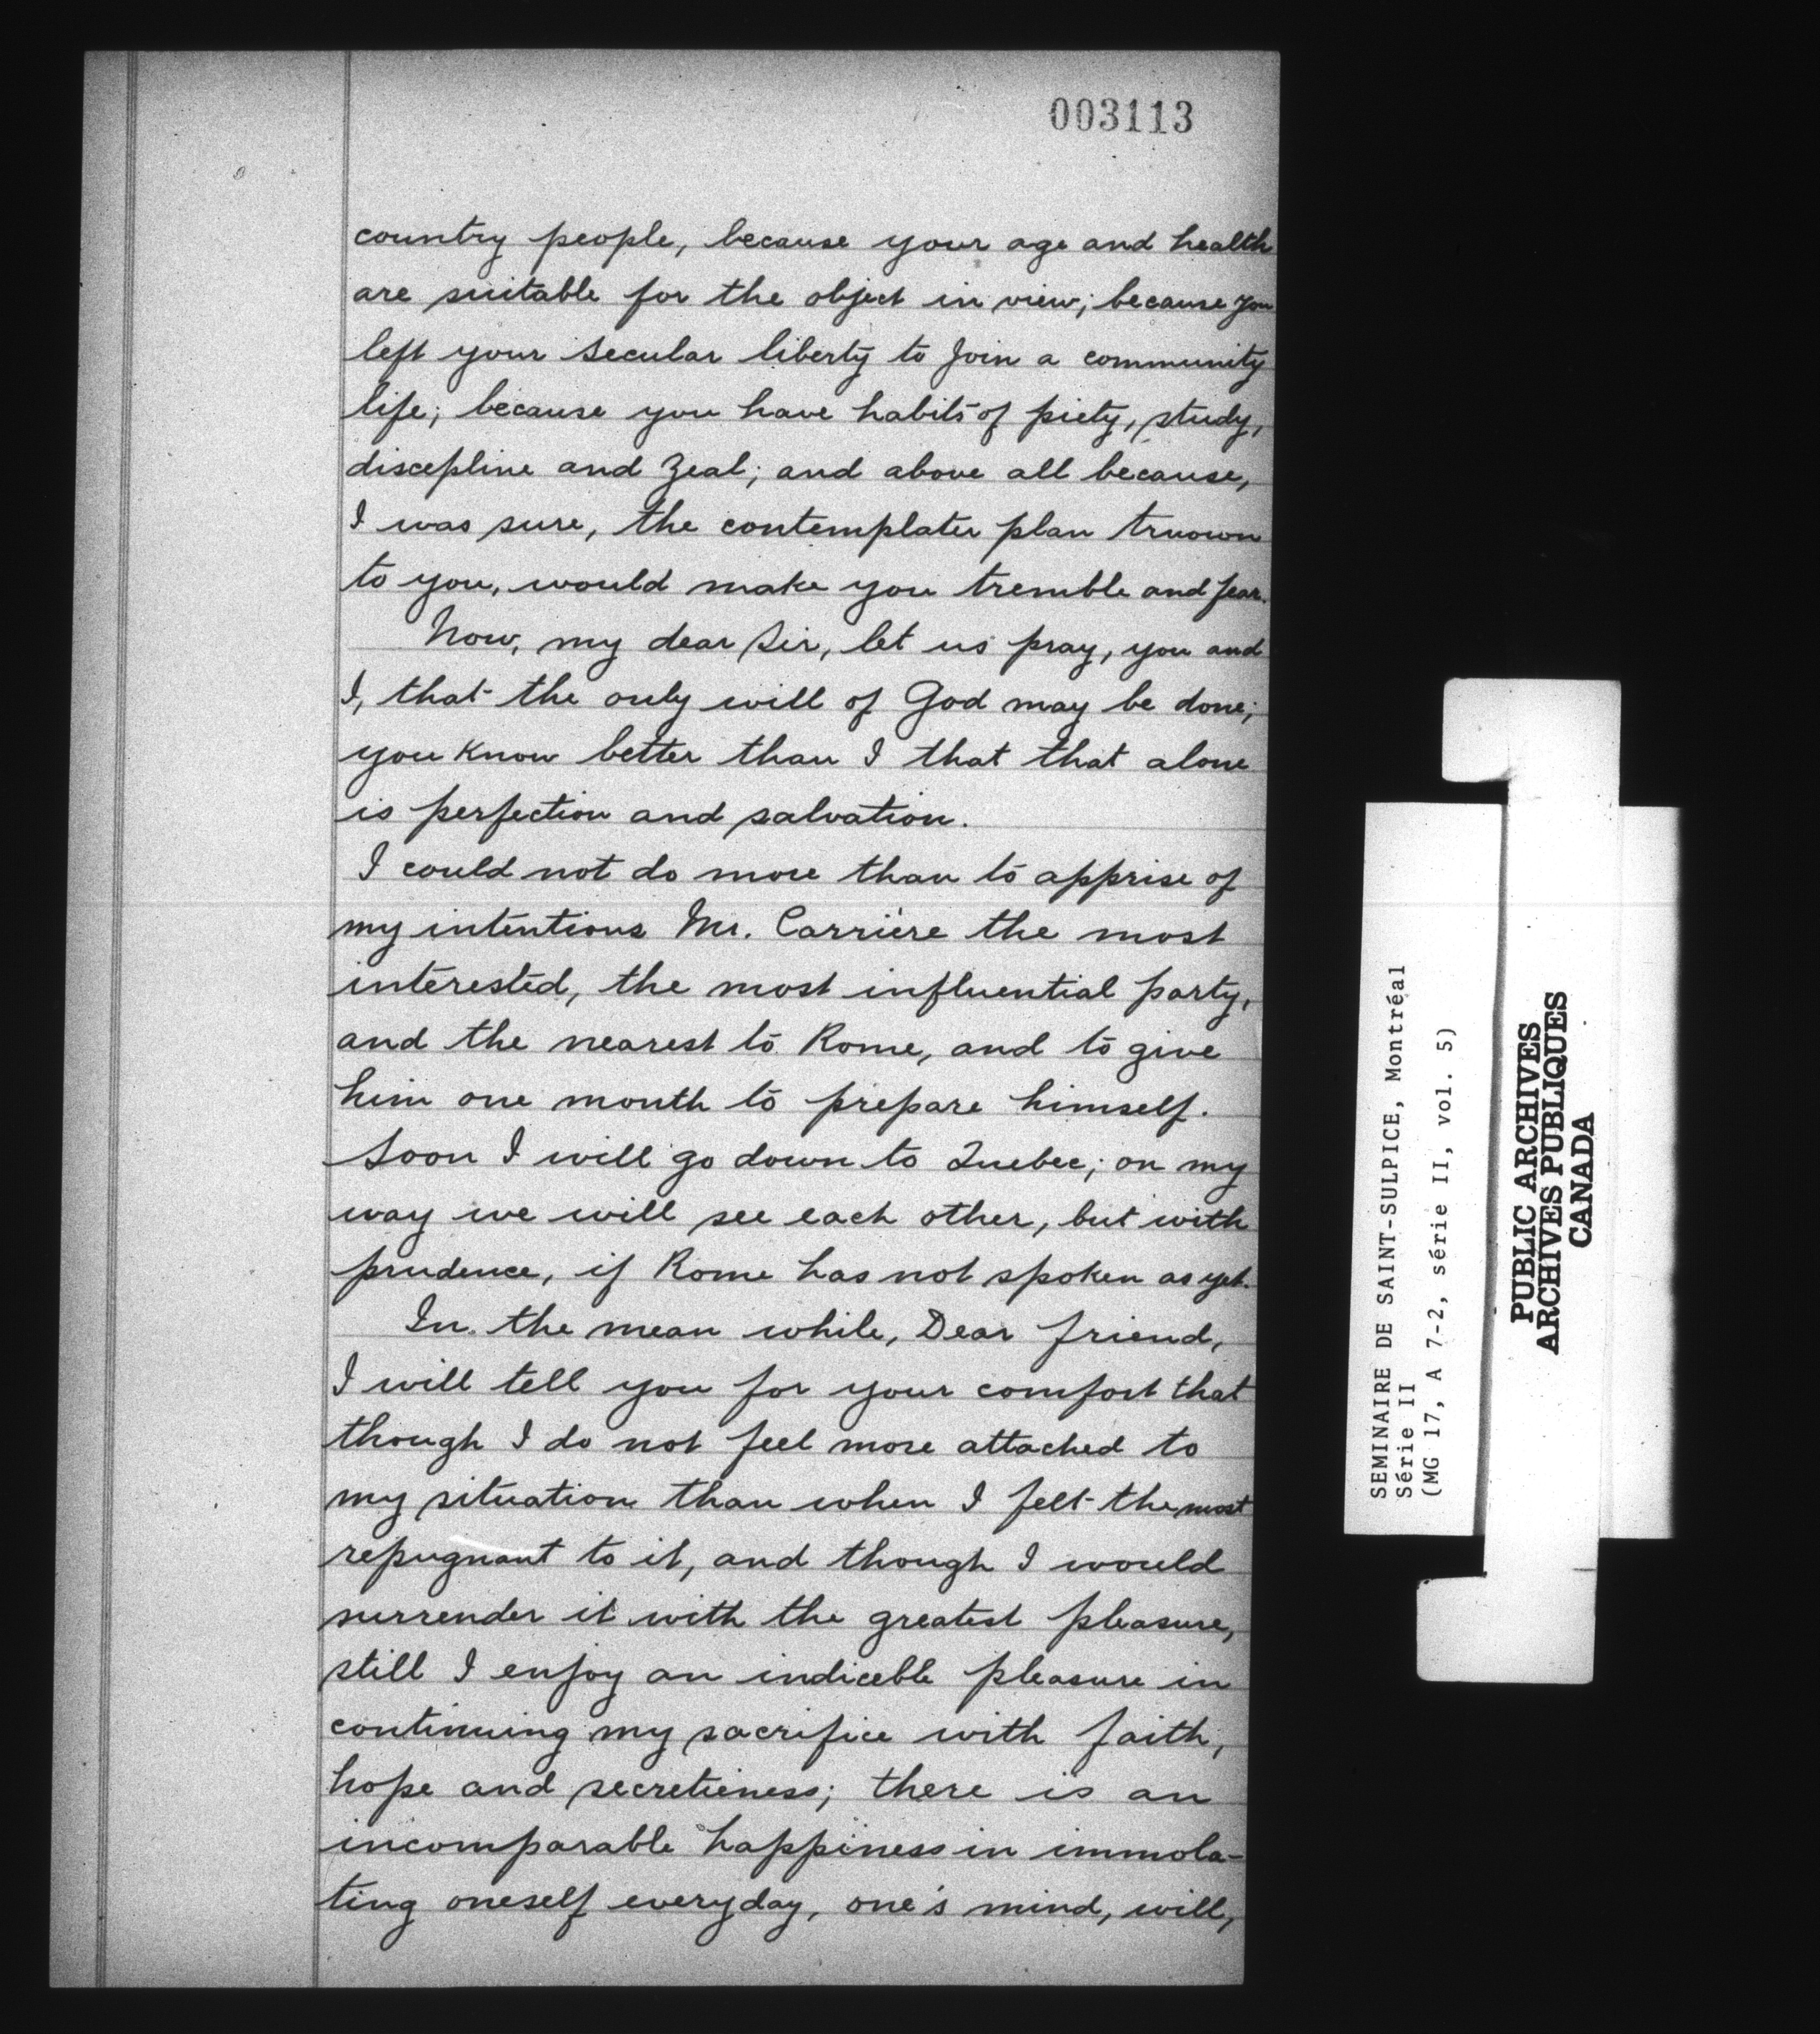 003113
country people, because your age and health
are suitable for the object in view; because you
left your secular liberty to join a community
life; because you have habits of piety, study,
discepline and zeal; and above all because,
I was sure, the contemplater plan truown
to you, would make you tremble and fear.
Now, my dear Sir, let us pray, you and
I, that the only will of God may be done;
you know better than I that that alone
is perfection and salvation.
I could not do more than to apprise of
my intentions Mr. Carrière the most
interested, the most influential party,
and the nearest to Rome, and to give
him one month to prepare himself.
Soon I will go down to Quebec; on my
way we will see each other, but with
prudence, if Rome has not spoken as yet.
In the mean while, Dear friend,
I will tell you for your comfort that
though I do not feel more attached to
my situation than when I felt the most
repugnant to it, and though I would
surrender it with the greatest pleasure,
still I enjoy an indiceble pleasure in
continuing my sacrifice with faith,
hope and secretieness; there is an
incomparable happiness in immola-
ting oneself everyday, one's mind, will,
SEMINAIRE DE SAINT-SULPICE, Montréal
Série II
(MG 17, A 7-2, série II, vol. 5)
PUBLIC ARCHIVES
ARCHIVES PUBLIQUES
CANADA